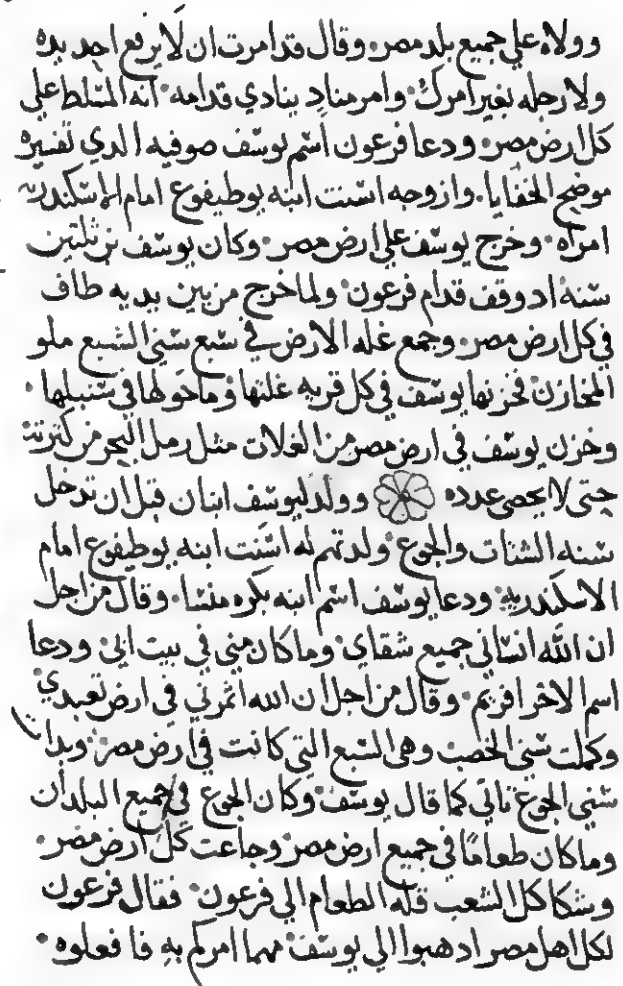 وولاه علي جميع بلد مصر· وقال قد امرت ان لا يرفع احد يده
ولا رجله بغير امرك· وامر مناد ينادي قدامه· انه المسلط علي
كل ارض مصر· ودعا فرعون اسم يوسف صوفيه الدي تفسيره
موضح الخفايا· وازوجه اسنت ابنه بوطيفوع امام الاسكندريه
امراه· وخرج يوسف علي ارض مصر· وكان يوسف بن ثلثين
سنه اد وقف قدام فرعون· ولما خرج من بين يديه طاف
في كل ارض مصر· وجمع غله الارض في سبع سني الشبع ملو
المخازن· فخزنها يوسف في كل قريه غلتها وما حولها في سنبلها·
وخزن يوسف في ارض مصر من الغلات مثل رمل البحر من كثرته
حتى لا يحصى عدده وولد ليوسف ابنان قبل ان تدخل
سنه الشتات والجوع· ولدتهم له اسنت ابنه بوطيفوع امام
الاسكندريه· ودعا يوسف اسم ابنه بكره منسا· وقال من اجل
ان الله انساني جميع شقاي· وما كان مني في بيت ابي· ودعا
اسم الاخر افريم· وقال من اجل ان الله اثمرني في ارض تعبدي·
وكملت سني الخصب وهي السبع التي كانت في ارض مصر· وبدات
سني الجوع تاتي كما قال يوسف· وكان الجوع في جميع البلدان
وما كان طعاما في جميع ارض مصر· وجاعت كل ارض مصر·
وشكا كل الشعب قله الطعام الي فرعون· فقال فرعون
لكل اهل مصر ادهبوا الي يوسف· مهما امركم به فافعلوه·